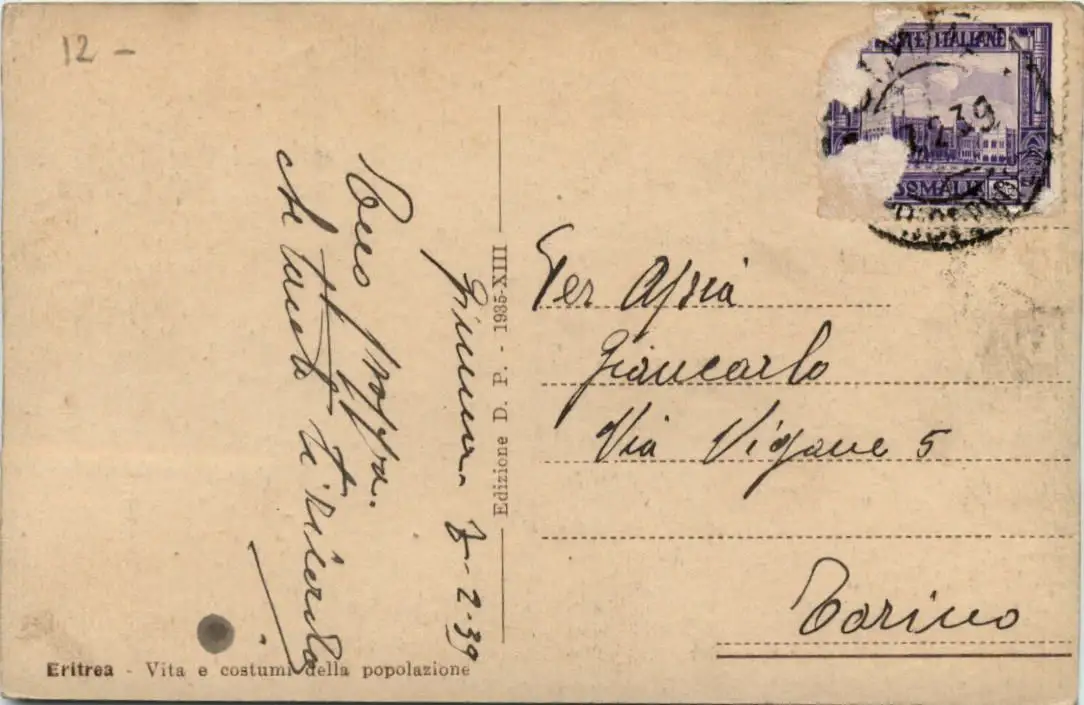 12 -
POSTE ITALIANE
2.39
SOMALIA
che tanto ti ricorda
Gimma - 7-2-39
Edizione D. P. - 1935-XIII
Per
Giancarlo
Via Vigone 5
Torino
Eritrea - Vita e costumi della popolazione